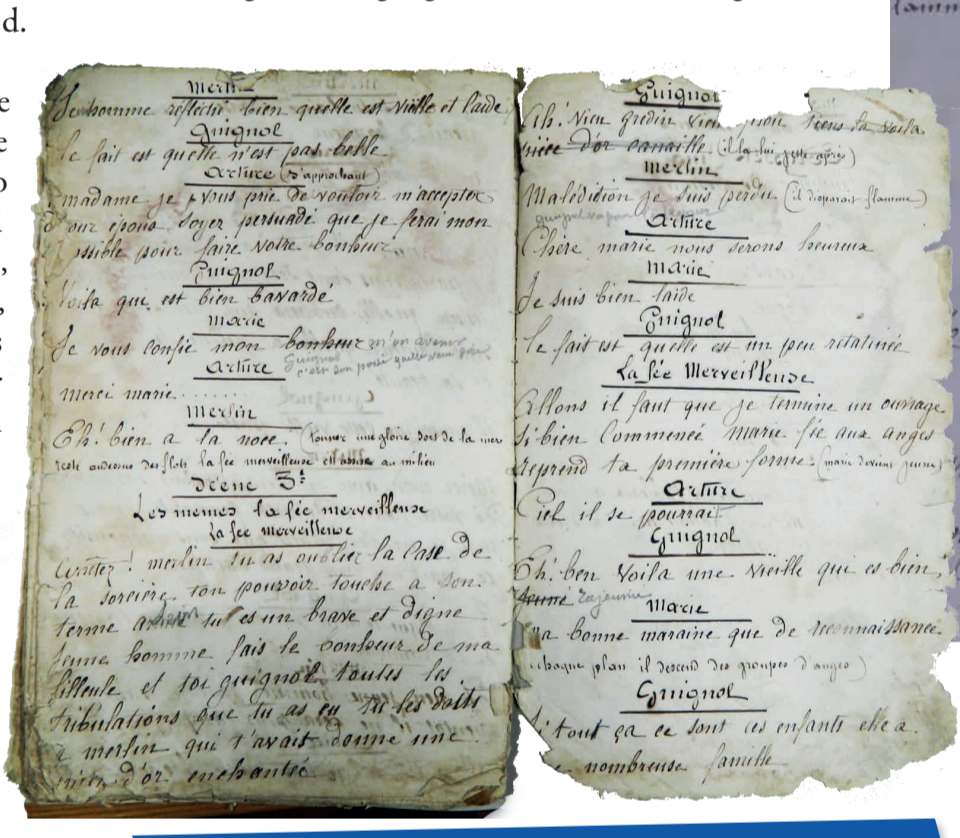 d.
e
e
o
,
,
s
Merlin
Je homme réfléchi bien quelle est vieille et laide
Guignol
le fait est quelle n'est pas belle
Arture (s'approchant)
madame je vous prie de vouloir m'accepter
pour épous soyez persuadé que je ferai mon
possible pour faire votre bonheur.
Guignol
Voila qui est bien bavardé
Marie
Je vous confie mon bonheur m'on avenir
Guignol
Arture
merci marie........
Merlin
Eh! bien a la noce. (tonner une gloire sort de la mer
reste audessus des flots la fée merveilleuse est assise au milieu
Scène 3e
Les mêmes la fée merveilleuse
La fée merveilleuse
! merlin tu as oublier la case de
la sorcière ton pouvoir touche a son
terme tu es un brave et digne
jeune homme fais le bonheur de ma
filleule et toi guignol toutes les
tribulations que tu as eu tu les doits
a merlin qui t'avait donné une
d'or enchantée
Guignol
Ah! vieu gredin tiens la voila
pièce d'or canaille (il la lui jette après)
Merlin
Malédiction je suis perdu (il disparait flamme)
Arture
Chère marie nous serons heureux
Marie
Je suis bien laide
Guignol
le fait est quelle est un peu ratatinée
La fée Merveilleuse
Allons il faut que je termine un ouvrage
si bien commencé marie fie aux anges
reprend ta première forme (marie devient jeune)
Arture
Ciel il se pourrait
Guignol
Eh! ben voila une vieille qui es bien
jeune rajeunie
Marie
ma bonne maraine que de reconnaissance
chaque plan il descend des groupes d'anges)
Guignol
Si tout ça ce sont ces enfants elle a
nombreuse famille